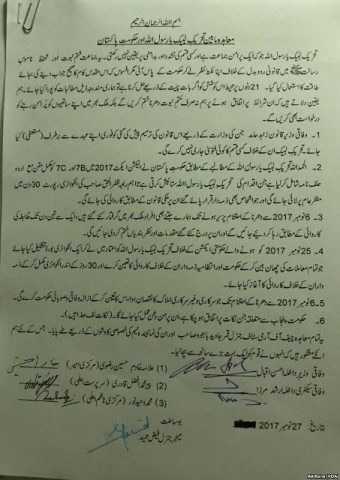 بسم اللہ الرحمان الرحیم
معاہدہ مابین تحریک لبیک یا رسول اللہ اور حکومت پاکستان
تحریک لبیک یا رسول اللہ جو کہ ایک پرامن جماعت ہے اور کسی قسم کی تشدد اور بدامنی پر یقین نہیں رکھتی۔ یہ جماعت ختم نبوت اور تحفظ ناموس
رسالت میں قانونی ردوبدل کے خلاف اپنا نقطہ نظر لے کر حکومت کے پاس آئی مگر افسوس اس مقدس کام کا صحیح جواب دینے کی بجائے
طاقت کا استعمال کیا گیا۔ 21 دنوں پر محیط اس کوشش کو اگر بات چیت کے ذریعے
یقین دلاتے ہیں کہ ان شرائط پر اتفاق ہونے پر ہم نہ صرف ختم نبوت دھرنا ختم کریں گے بلکہ ملک بھر میں اپنے ساتھیوں کو پرامن رہنے کی
درخواست بھی کریں گے۔
1۔ وفاقی وزیر قانون زاہد حامد جن کی وزارت کے ذریعے اس قانون کی ترمیم پیش کی گئی کو فوری اپنے عہدے سے برطرف (مستعفی) کیا
جائے۔ تحریک لبیک ان کے خلاف کسی قسم کا کوئی فتویٰ جاری نہیں کرے گی۔
2۔ الحمدللہ تحریک لبیک یا رسول اللہ کے مطالبے کے مطابق حکومت پاکستان نے الیکشن ایکٹ 2017 میں 7B اور 7C کو مکمل متن مع اردو
حلف نامہ شامل کر لیا ہے جن اقدام کی تحریک لبیک یا رسول اللہ ستائش کرتی ہے تاہم راجہ ظفر الحق صاحب کی انکوائری رپورٹ 30 دن میں
منظر عام پر لائی جائے گی اور جو اشخاص بھی ذمہ دار قرار پائے گئے ان پر ملکی قانون کے مطابق کاروائی کی جائے گی۔
3۔ 6 نومبر 2017 سے دھرنا کے اختتام پذیر ہونے تک ہمارے جتنے بھی افراد ملک بھر میں گرفتار کئے گئے ہیں، ایک سے تین دن تک ضابطہ کی
کاروائی کے مطابق رہا کر دیئے جائیں گے اور ان پر درج کئے گئے مقدمات اور نظر بندیاں ختم کر دی جائیں گی۔
4۔ 25 نومبر 2017 کو ہونے والے حکومتی ایکشن کے خلاف تحریک لبیک یا رسول اللہ کو اعتماد میں لے کر ایک انکوائری بورڈ تشکیل دیا جائے
جو تمام معاملات کی چھان بین کر کے حکومت اور انتظامیہ ذمہ داران کے خلاف کاروائی کا تعین کرے اور 30 روز کے اندر انکوائری مکمل کر کے ذمہ
داران کے خلاف کاروائی کا آغاز کیا جائے۔
5۔ 6 نومبر 2017 سے دھرنا کے اختتام تک جو سرکاری و غیر سرکاری املاک کا نقصان ہوا اس کا تعین کر کے ازالہ وفاقی و صوبائی حکومت کرے گی۔
6۔ حکومت پنجاب سے متعلقہ جن نکات پر اتفاق ہو چکا ہے ان پر من و عن عمل کیا جائے گا۔
یہ تمام معاہدہ چیف آف آرمی سٹاف جنرل قمر جاوید باجوہ صاحب اور ان کی نمائندہ ٹیم کی خصوصی کاوشوں کے ذریعے طے پایا۔ جس کے لئے ہم
ان کے مشکور ہیں کہ انہوں نے قوم کو ایک بہت بڑے سانحہ سے بچا لیا۔
وفاقی وزیر داخلہ احسن اقبال (1) علامہ خادم حسین رضوی (مرکزی امیر)
وفاقی سیکرٹری داخلہ ارشد مرزا (2) پیر محمد افضل قادری (سرپرست اعلیٰ)
(3) محمد وحید نور (مرکزی ناظم اعلیٰ)
بوساطت
میجر جنرل فیض حمید
تاریخ: 27 نومبر 2017